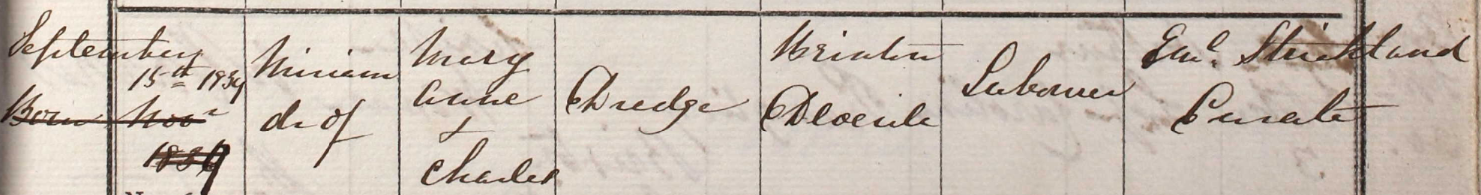 September
15th 1839
Born Novr
1839
Miriam
dr of
Mary
Anne
+
Charles
Dredge
Brixton
Deverile
Labourer
Eml. Strickland
Curate